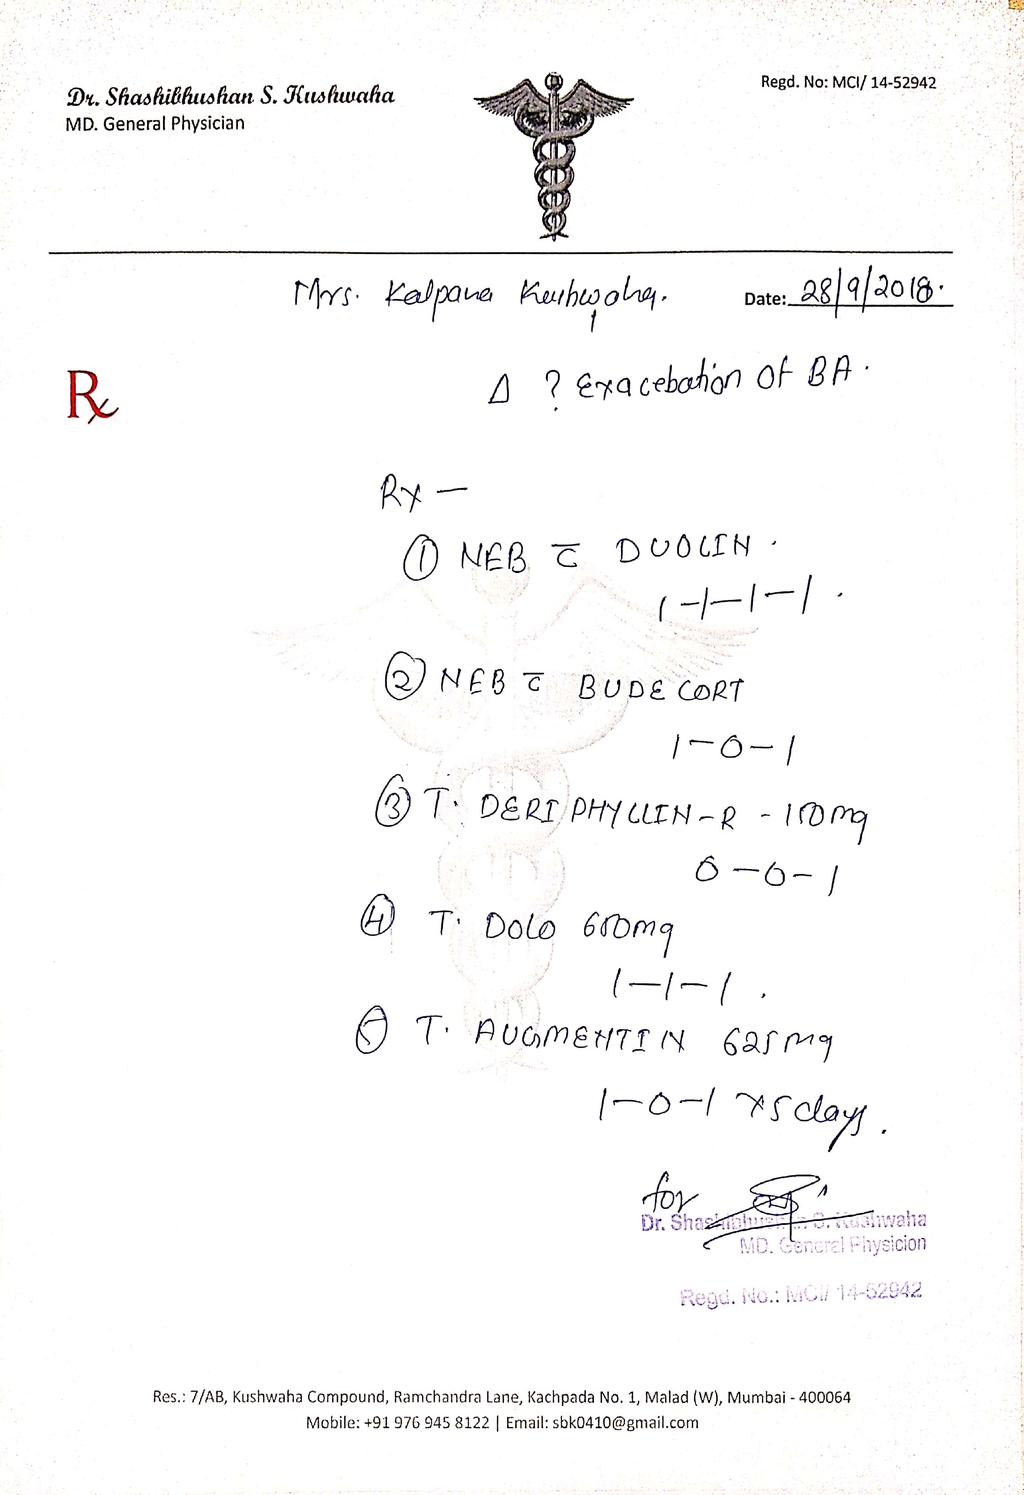 Dr. Shashibhushan S. Kushwaha
MD. General Physician
Regd. No: MCI/ 14-52942
Mrs. Kalpana Kushwaha.
Date: 28/9/2018.
Rx
Δ ? Exacebation of BA.
Rx —
① NEB c̅ DUOLIN.
1-1-1-1.
② NEB c̅ BUDECORT
1-0-1
③ T. DERIPHYLLIN-R - 150mg
0-0-1
④ T. DOLO 650mg
1-1-1.
⑤ T. AUGMENTIN 625mg
1-0-1 x 5 days.
for
Dr. Shashibhushan S. Kushwaha
MD. General Physicion
Regd. No.: MCI/ 14-52942
Res.: 7/AB, Kushwaha Compound, Ramchandra Lane, Kachpada No. 1, Malad (W), Mumbai - 400064
Mobile: +91 976 945 8122 | Email: sbk0410@gmail.com